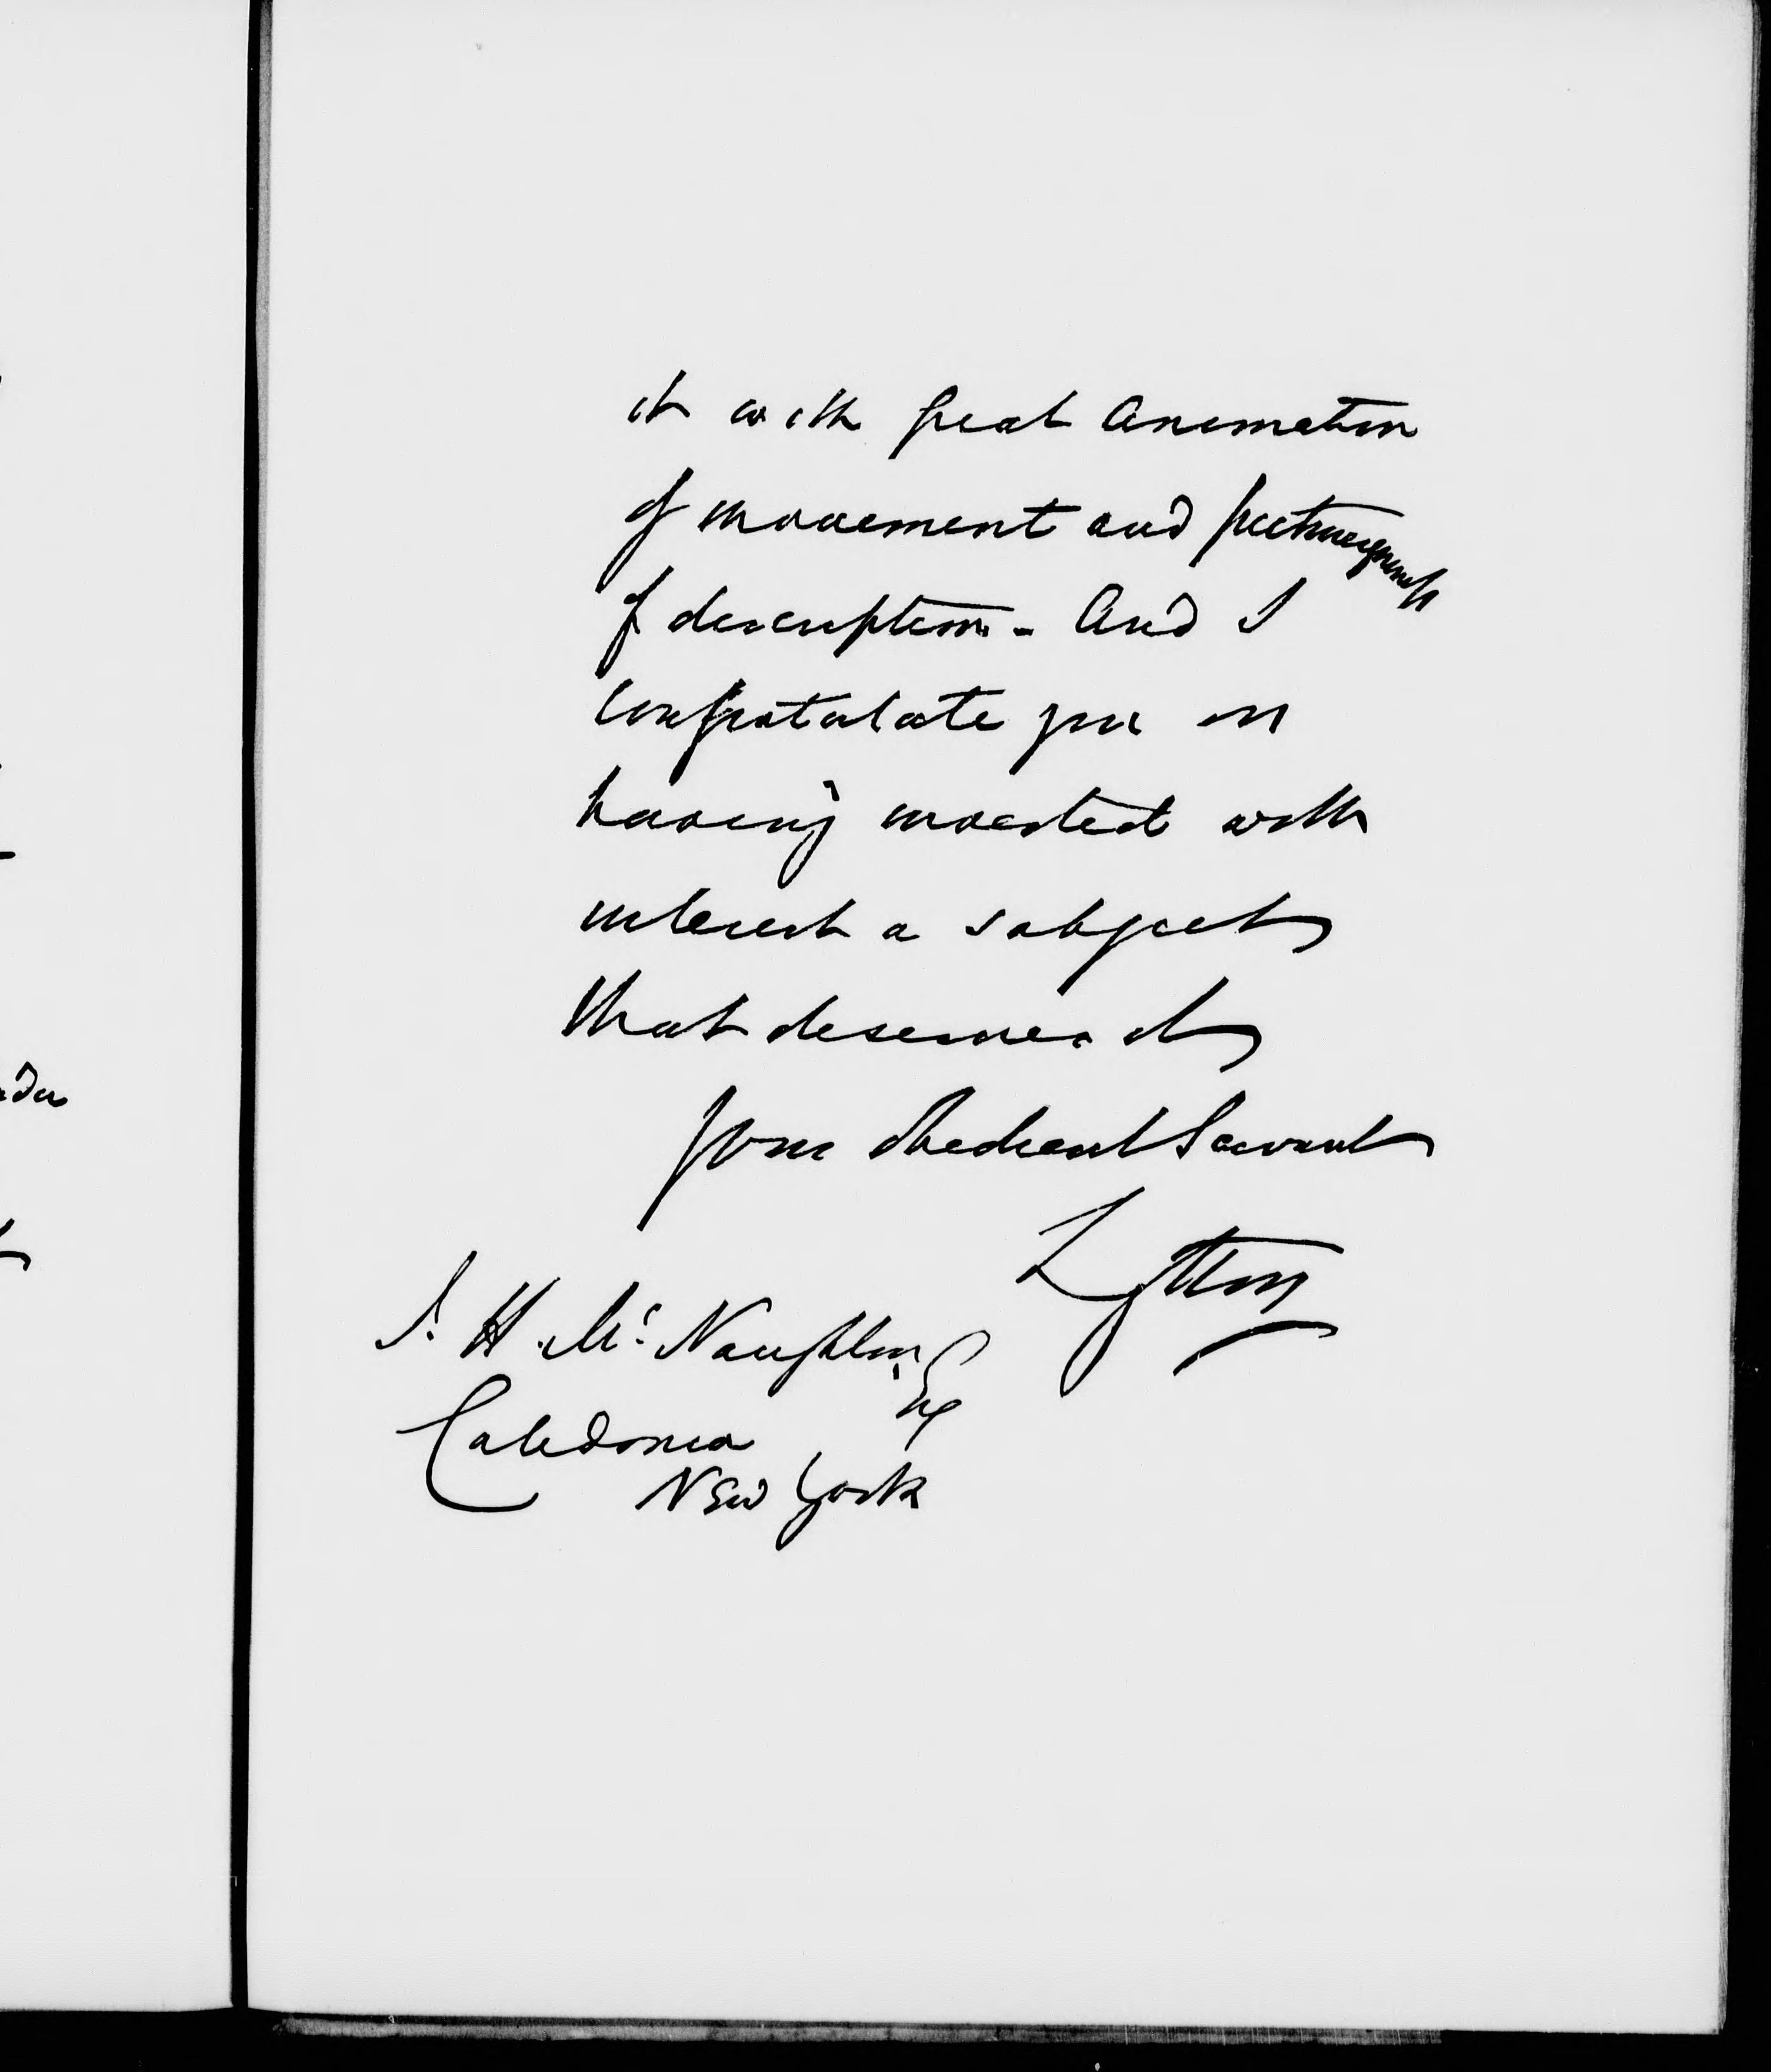 it with great animation
of movement and picturesqueness
of description - And I
congratulate you on
having invested with
interest a subject
that deserves it
Your obedient Servant
Lytton
J. H. Mc Naughton Esq
Caledonia
New York